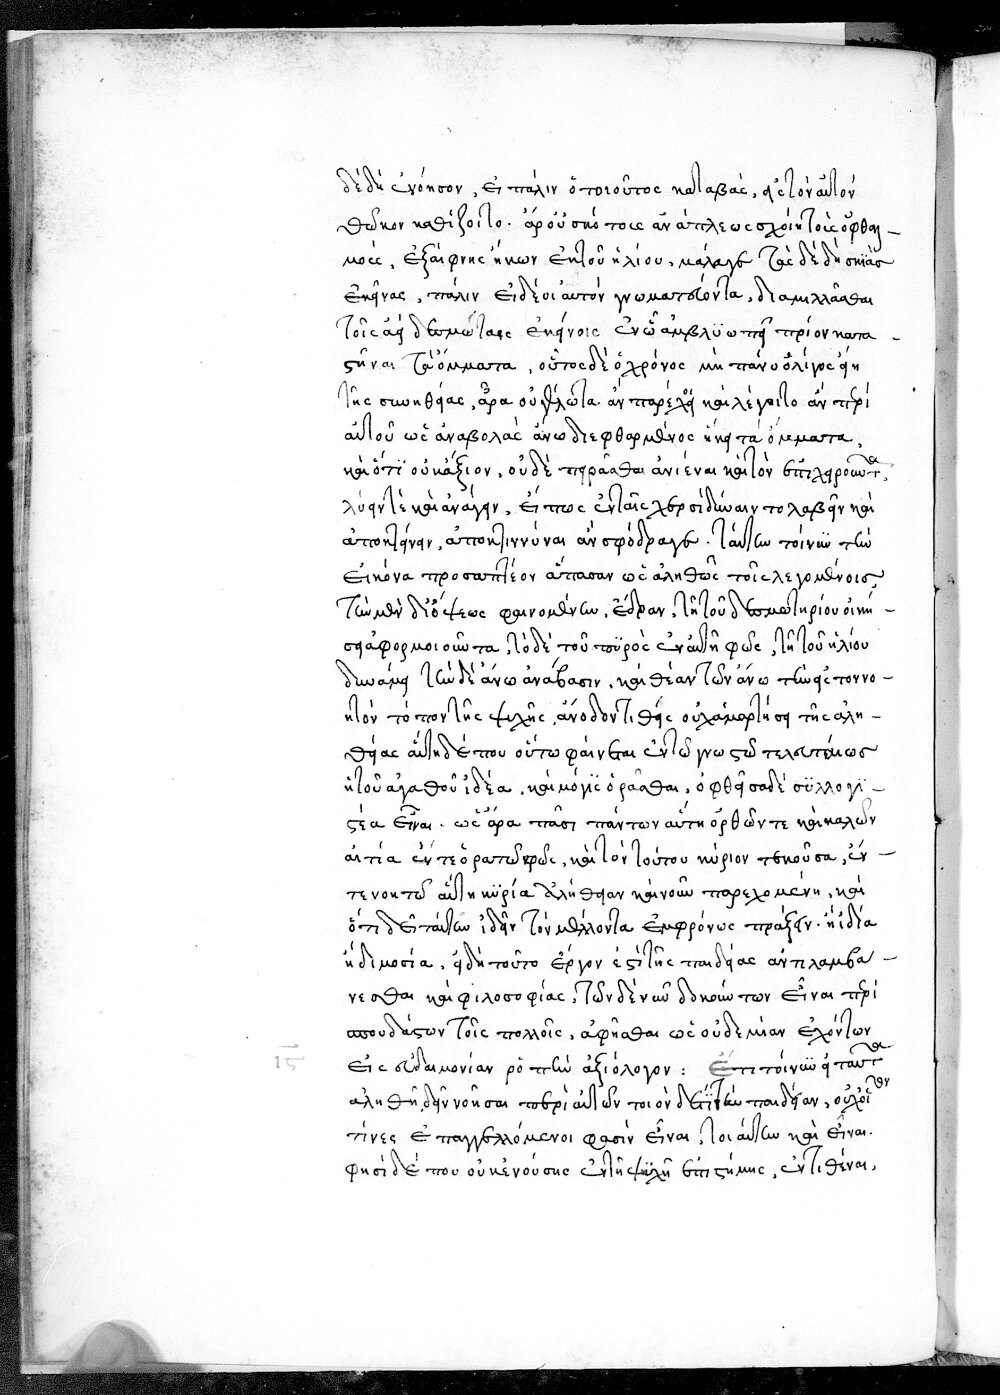 δὲ δὴ ἐννόησον, εἰ πάλιν ὁ τοιοῦτος καταβὰς, εἰς τὸν αὐτὸν
θῶκον καθίζοιτο. ἆρ' οὐ σκότους ἂν ἀπλέως σχοίη τοὺς ὀφθαλ-
μοὺς, ἐξαίφνης ἥκων ἐκ τοῦ ἡλίου, μάλα γε τὰς δὲ δὴ σκιὰς
ἐκείνας, πάλιν εἰ δέοι αὐτὸν γνωματεύοντα, διαμιλλᾶσθαι
τοῖς ἀεὶ δεσμώταις ἐκείνοις ἐν ὧ ἀμβλυώττει πρίον κατα-
στῆναι τὰ ὄμματα, οὗτος δὲ ὁ χρόνος μὴ πάνυ ὀλίγος εἴη
τῆς συνηθείας, ἆρα οὐ γέλωτα ἂν παρέχοι καὶ λέγοιτο ἂν περὶ
αὐτοῦ ὡς ἀναβολὰς ἄνω διεφθαρμένος ἥκει τὰ ὄμματα,
καὶ ὅτι οὐκ ἄξιον, οὐδὲ πειρᾶσθαι ἀνιέναι καὶ τὸν ἐπιχειροῦντα
λύειν τὲ καὶ ἀνάγειν, εἴ πως ἐν ταῖς χερσὶ δύναιντο λαβεῖν καὶ
ἀποκτείνειν, ἀποκτιννύναι ἂν σφόδρα γε. ταύτην τοίνυν τὴν
εἰκόνα προσαπτέον ἅπασαν ὡς ἀληθῶς τοῖς λεγομένοις,
τὴν μὲν δι' ὄψεως φαινομένην, ἕδραν, τῇ τοῦ δεσμωτηρίου οἰκή-
σει ἀφομοιοῦντα, τὸ δὲ τοῦ πυρὸς ἐν αὐτῇ φῶς, τῇ τοῦ ἡλίου
δυνάμει τὴν δὲ ἄνω ἀνάβασιν, καὶ θέαν τῶν ἄνω τὴν εἰς τὸν νο-
ητὸν τόπον τῆς ψυχῆς, ἄνοδον τιθεὶς οὐχ ἁμαρτήσει τῆς ἀλη-
θείας αὕτη δέ που οὕτω φαίνεται ἐν τῷ γνωστῶ τελευταίως
ἡ τοῦ ἀγαθοῦ ἰδέα, καὶ μόγις ὁρᾶσθαι, ὀφθεῖσα δὲ συλλογι-
στέα εἶναι. ὡς ἄρα πᾶσι πάντων αὕτη ὀρθῶν τε καὶ καλῶν
αἰτία ἔν τε ὁρατῶ φῶς, καὶ τὸν τούτου κύριον τεκοῦσα, ἔν
τε νοητῶ αὐτὴ κυρία ἀλήθειαν καὶ νοῦν παρεχομένη, καὶ
ὅτι δεῖ ταύτην ἰδεῖν τὸν μέλλοντα ἐμφρόνως πράξειν. ἢ ἰδία
ἢ δημοσία, ἤδη τοῦτο ἔργον ἐστὶ τῆς παιδείας ἀντιλαμβά-
νεσθαι καὶ φιλοσοφίας, τῶν δὲ νῦν δοκούντων εἶναι περὶ
σπουδάστων τοῖς πολλοῖς, ἀφεῖσθαι ὡς οὐδεμίαν ἐχόντων
ιϛ εἰς εὐδαιμονίαν ῥοπὴν ἀξιόλογον: Ἔτι τοίνυν εἰ ταῦτα
ἀληθῆ, δεῖν νοῆσαι περὶ αὐτῶν ποιὸν δέ τι τὴν παιδείαν, οὐχ οἵαν
τινὲς ἐπαγγελλόμενοι φασὶν εἶναι, τοιαύτην καὶ εἶναι.
φησὶ δέ που οὐκ ἐνούσης ἐν τῆ ψυχῆ ἐπιστήμης, ἐντιθέναι,